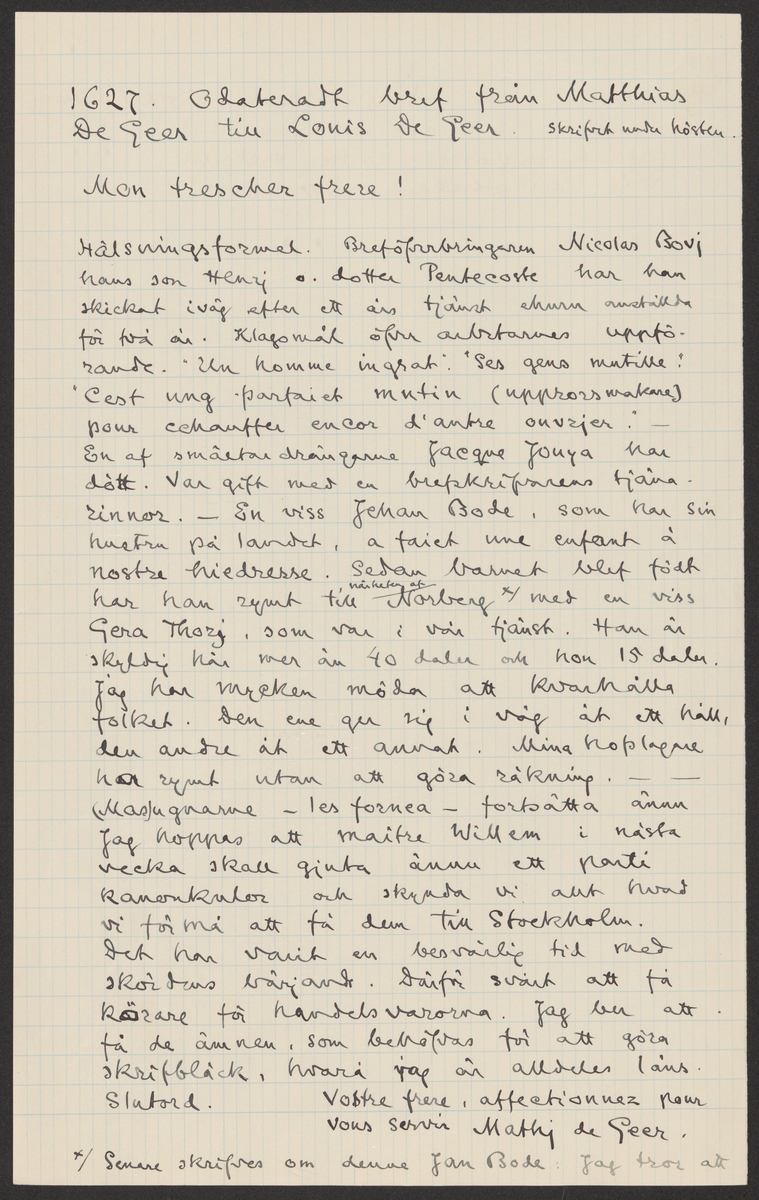 1627. Odateradt bref från Matthias
De Geer till Louis De Geer. skrifvet under hösten.
Mon trescher frere!
Hälsningsformel. Breföfverbringaren Nicolas Bovj
hans son Henrj o. dotter Pentecoste har han
skickat iväg efter ett års tjänst ehuru anställda
för två år. Klagomål öfver arbetarnes uppfö-
rande. "Un homme ingrat". "Ses gens mutille!
"Cest ung parfaiet mutin (upprorsmakare)
pour echauffer encor d'autre ouvrjer." —
En af smältardrängarne Jacque Jouya har
dött. Var gift med en brefskrifvarens tjäna-
rinnor. — En viss Jehan Bode, som har sin
hustru på landet, a faict une enfant à
nostre hiedresse. Sedan barnet blef födt
har han rymt till närheten af Norberg x/ med en viss
Gera Thorj, som var i vår tjänst. Han är
skyldig här mer än 40 daler och hon 15 daler.
Jag har mycken möda att kvarhålla
folket. Den ene ger sig i väg åt ett håll,
den andre åt ett annat. Mina koplagare
har rymt utan att göra räkning. — —
(Mas)ugnarne – les fornea – fortsätta ännu
Jag hoppas att maitre Willem i nästa
vecka skall gjuta ännu ett parti
kanonkulor och skynda vi allt hvad
vi förmå att få dem till Stockholm.
Det har varit en besvärlig tid med
skördens bärjande. Därför svårt att få
körare för handelsvarorna. Jag ber att
få de ämnen, som behöfvas för att göra
skrifbläck, hvarå jag är alldeles läns.
Slutord. Vostre frere, affectionnez pour
vous servir Mathj de Geer.
x/ Senare skrifves om denne Jan Bode: Jag tror att